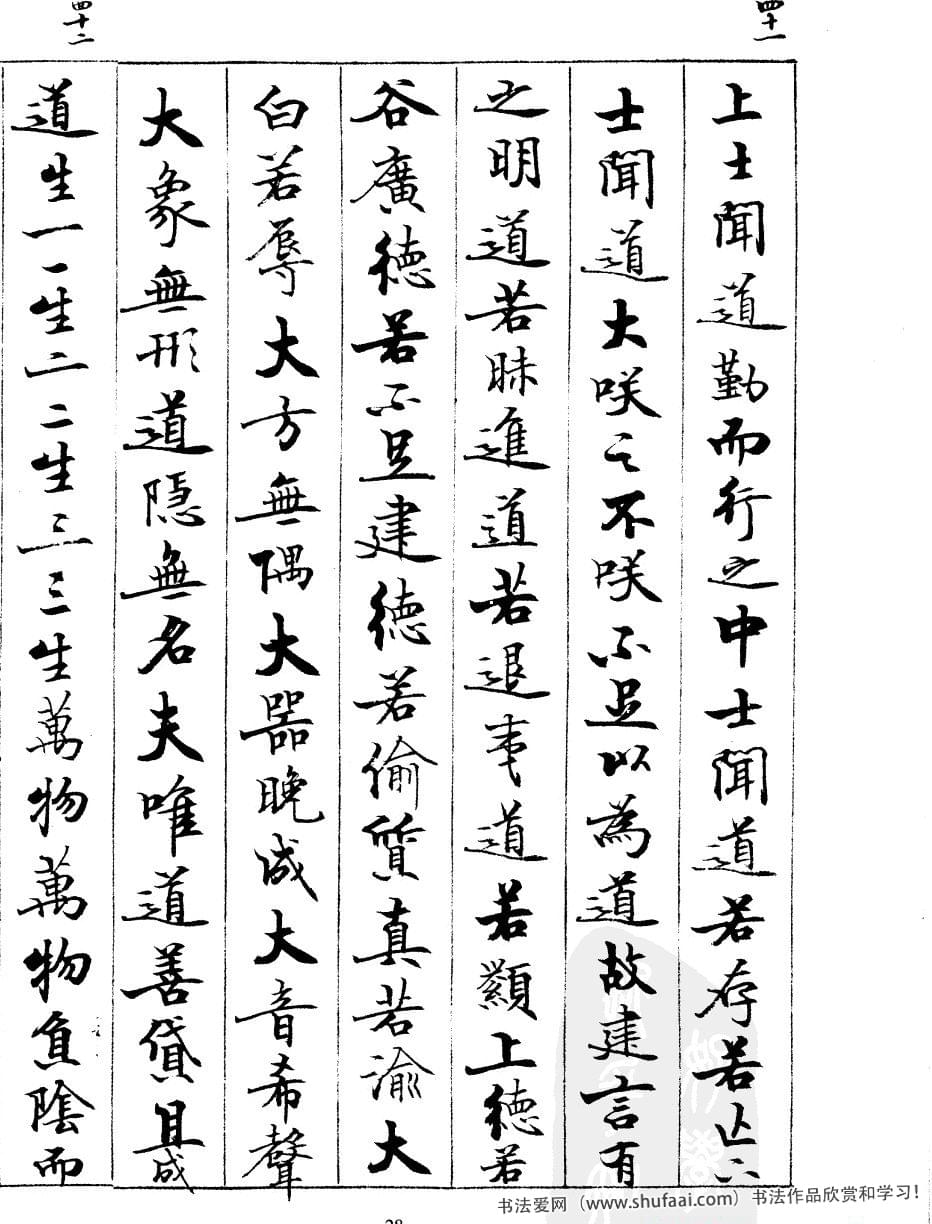 四十一
上士聞道勤而行之中士聞道若存若亡下
士聞道大咲之不咲不足以為道故建言有
之明道若昧進道若退夷道若纇上德若
谷廣德若不足建德若偷質真若渝大
白若辱大方無隅大器晚成大音希聲
大象無形道隱無名夫唯道善貸且成
四十二
道生一一生二二生三三生萬物萬物負陰而
书法爱网（www.shufaai.com）书法作品欣赏和学习！